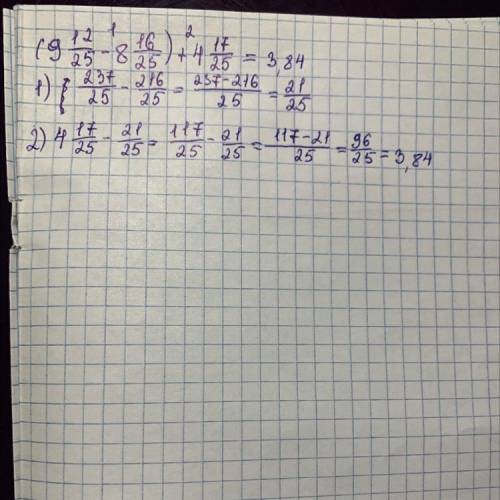 (9 12/25 -¹ 8 16/25) +² 4 17/25 = 3,84
1) 237/25 - 216/25 = 237-216/25 = 21/25
2) 4 17/25 - 21/25 = 117/25 - 21/25 = 117-21/25 = 96/25 = 3,84